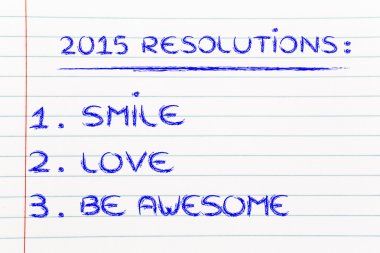 2015 RESOLUTIONS:
1. SMILE
2. LOVE
3. BE AWESOME